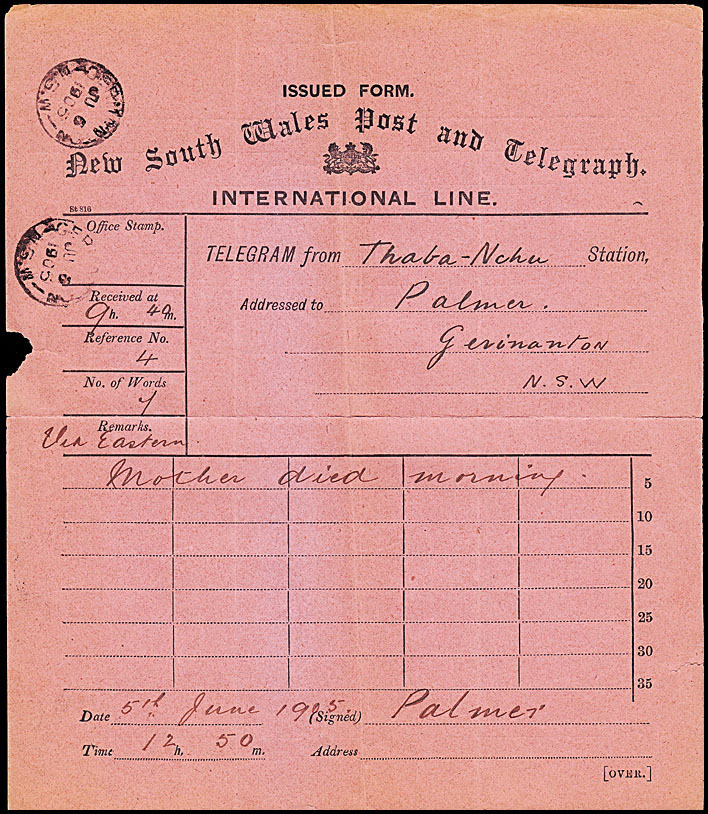 ISSUED FORM.
New South Wales Post and Telegraph.
INTERNATIONAL LINE.
St 816
Office Stamp.
N.S.W
JU 6
1905
TELEGRAM from Thaba-Nchu Station,
Received at
9h. 40m.
Addressed to Palmer.
Reference No.
4
Gerinanton
No. of Words
N.S.W
Remarks.
Via Eastern.
Mother died morning.
5
10
15
20
25
30
35
Date 5th June 1905. (Signed) Palmer
Time 12h. 50m. Address
[OVER.]